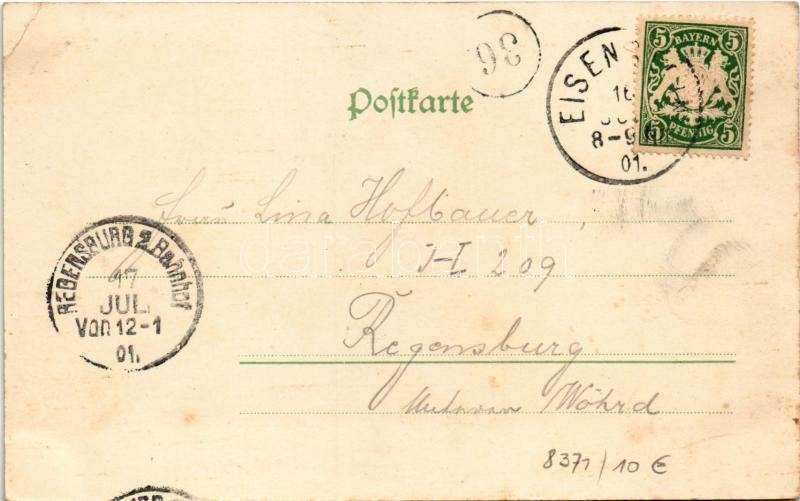 36
EISEN
16
8-9
01.
5 BAYERN 5
5 PFENNIG 5
Postkarte
Lina Hofbauer,
H-I 209
Regensburg
Wöhrd
REGENSBURG 2. Bahnhof
17
JUL
Von 12-1
01.
8371/10 €
darabanth